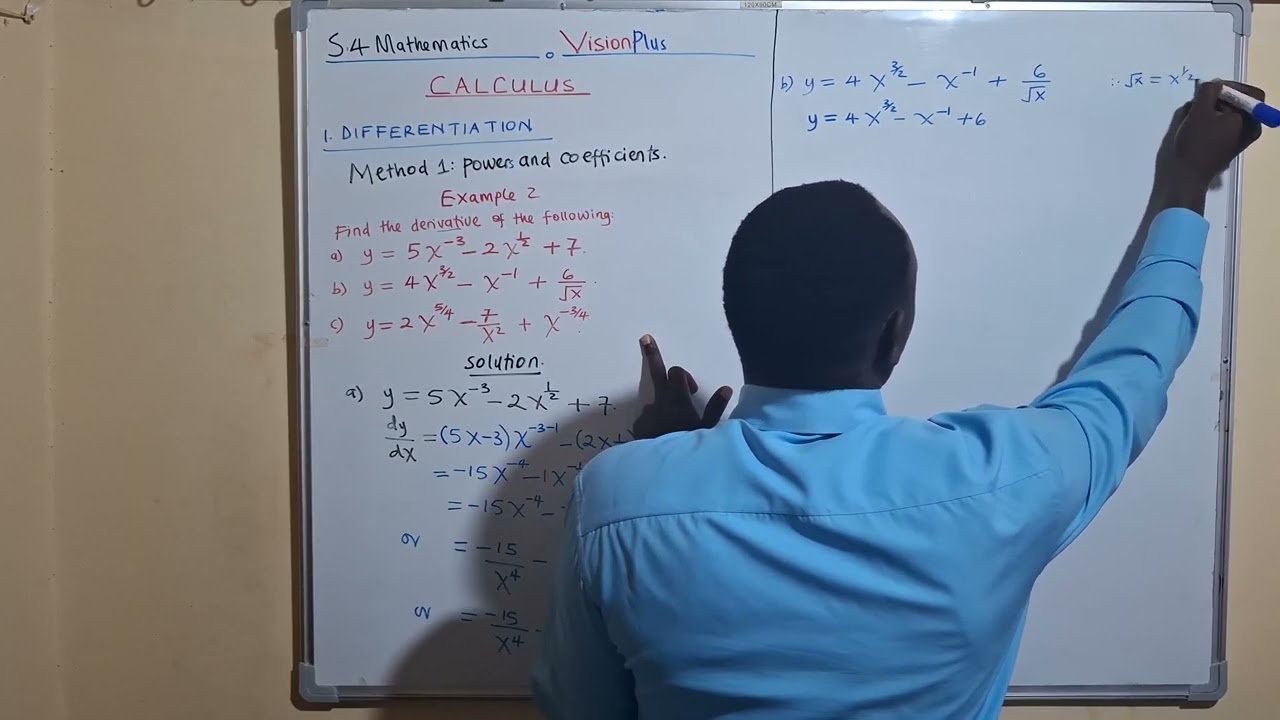 120X90CM
S.4 Mathematics VisionPlus
CALCULUS
1. DIFFERENTIATION
Method 1: powers and coefficients.
Example 2
Find the derivative of the following:
a) y = 5x⁻³ - 2x^½ + 7.
b) y = 4x^3/2 - x⁻¹ + 6/√x.
c) y = 2x^5/4 - 7/x² + x^-3/4.
solution.
a) y = 5x⁻³ - 2x^½ + 7.
dy/dx = (5x-3)x^-3-1 - (2x
= -15x⁻⁴ - 1x⁻
= -15x⁻⁴ -
or = -15/x⁴ -
or = -15/x⁴ -
b) y = 4x^3/2 - x⁻¹ + 6/√x ∴ √x = x^1/2
y = 4x^3/2 - x⁻¹ + 6